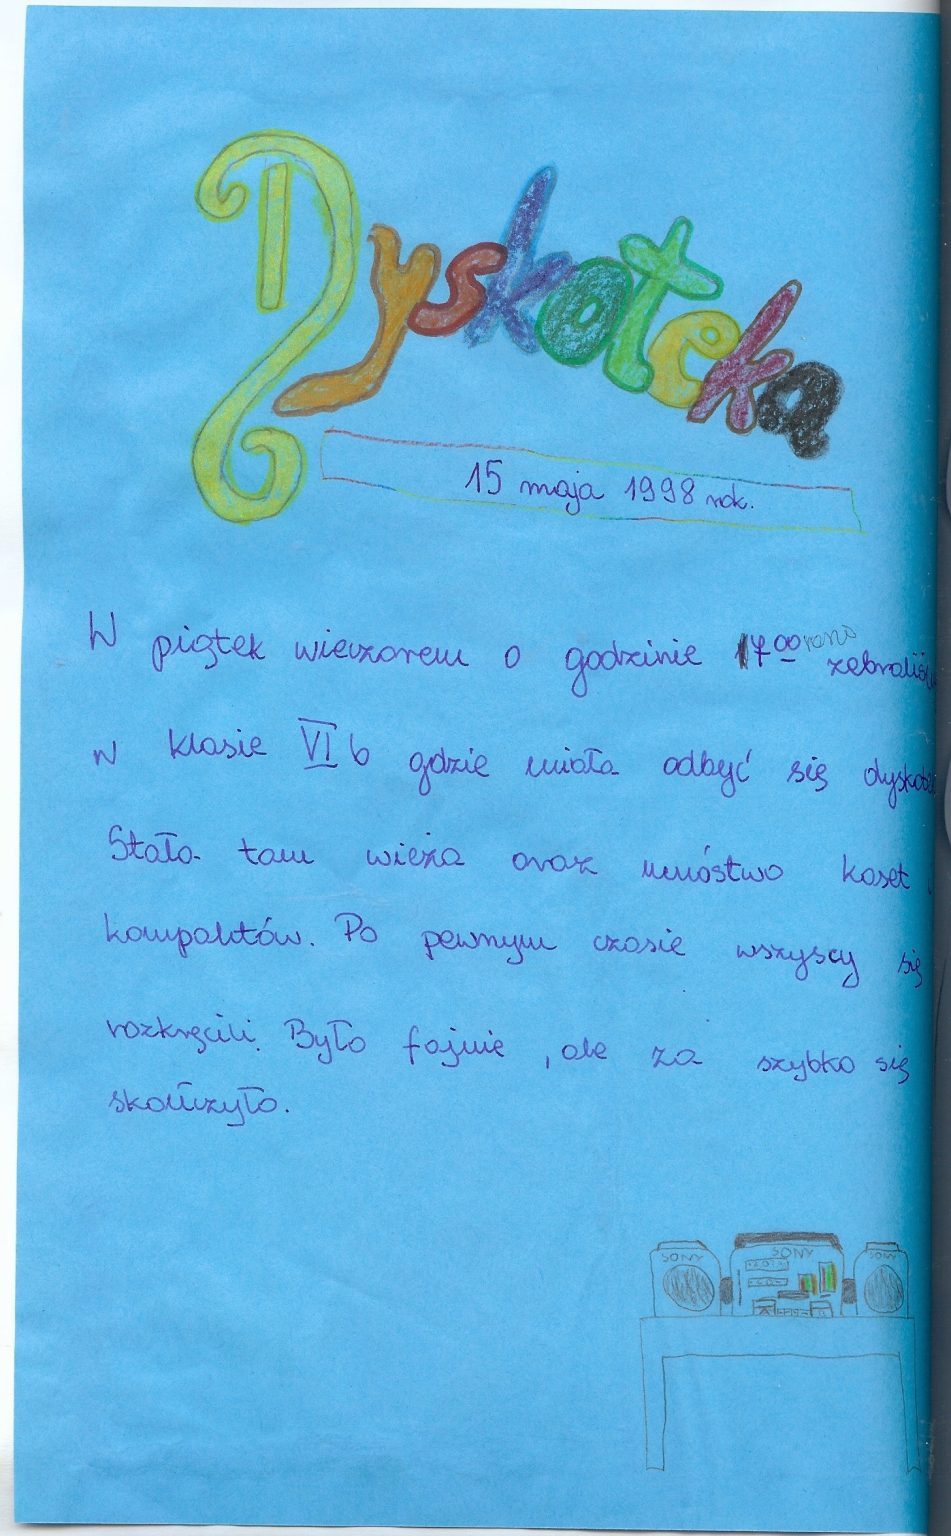 Dyskoteka
15 maja 1998 rok.
W piątek wieczorem o godzinie 17 00 rano zebraliś
w klasie VI b gdzie miała odbyć się dyskote
Stała tam wieża oraz mnóstwo kaset
kompaktów. Po pewnym czasie wszyscy się
rozkręcili. Było fajnie, ale za szybko się
skończyło.
SONY SONY SONY